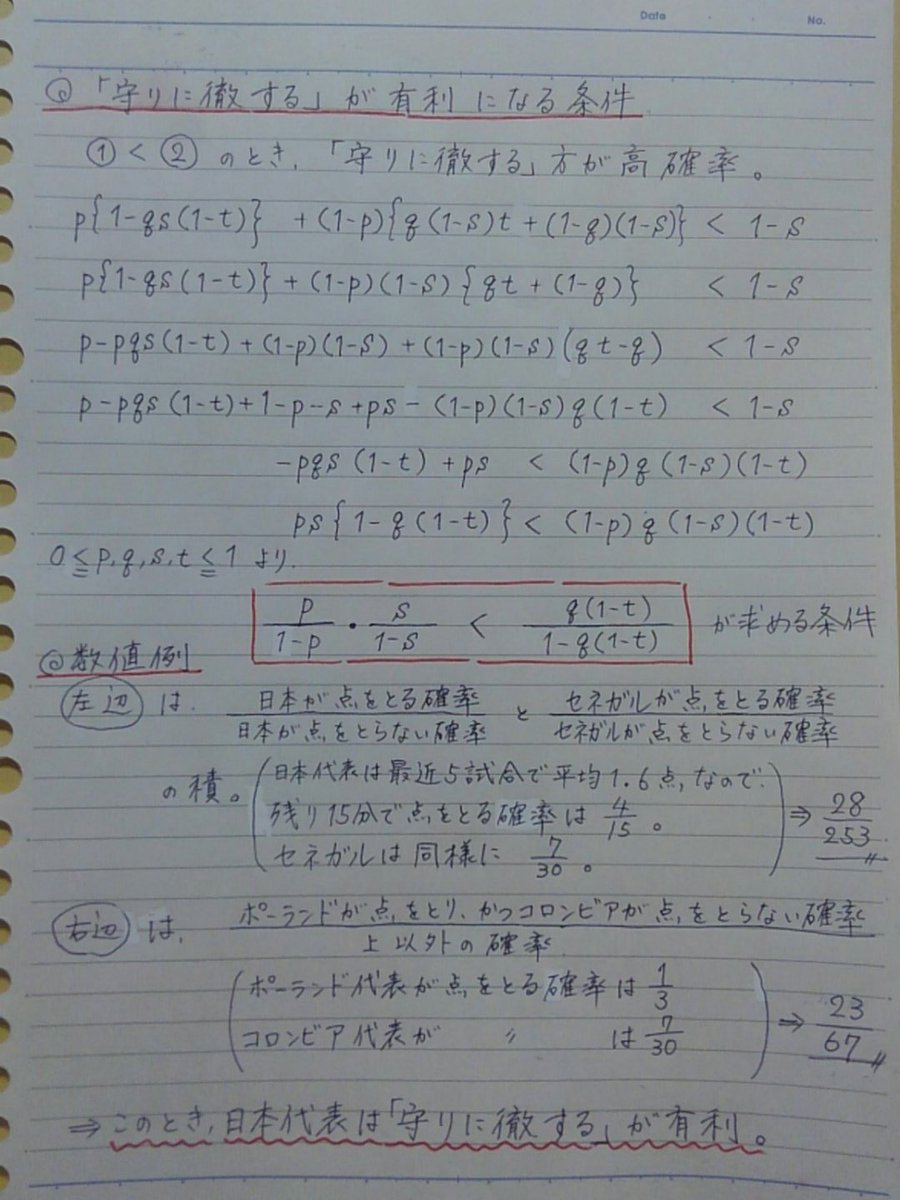 Date No.
◎「守りに徹する」が有利になる条件
①<②のとき、「守りに徹する」方が高確率。
p{1-qs(1-t)} +(1-p){q(1-s)t+(1-q)(1-s)} < 1-s
p{1-qs(1-t)}+(1-p)(1-s){qt+(1-q)} < 1-s
p-pqs(1-t)+(1-p)(1-s)+(1-p)(1-s)(qt-q) < 1-s
p-pqs(1-t)+1-p-s+ps-(1-p)(1-s)q(1-t) < 1-s
-pqs(1-t)+ps < (1-p)q(1-s)(1-t)
ps{1-q(1-t)}< (1-p)q(1-s)(1-t)
0≦p,q,s,t≦1より、
p/(1-p)・s/(1-s) < q(1-t)/(1-q(1-t)) が求める条件
◎数値例
左辺は、日本が点をとる確率/日本が点をとらない確率 と セネガルが点をとる確率/セネガルが点をとらない確率
の積。(日本代表は最近5試合で平均1.6点、なので、
残り15分で点をとる確率は4/15。
セネガルは同様に7/30。) ⇒ 28/253
右辺は、ポーランドが点をとり、かつコロンビアが点をとらない確率/上以外の確率
(ポーランド代表が点をとる確率は1/3
コロンビア代表が 〃 は7/30) ⇒ 23/67
⇒このとき、日本代表は「守りに徹する」が有利。